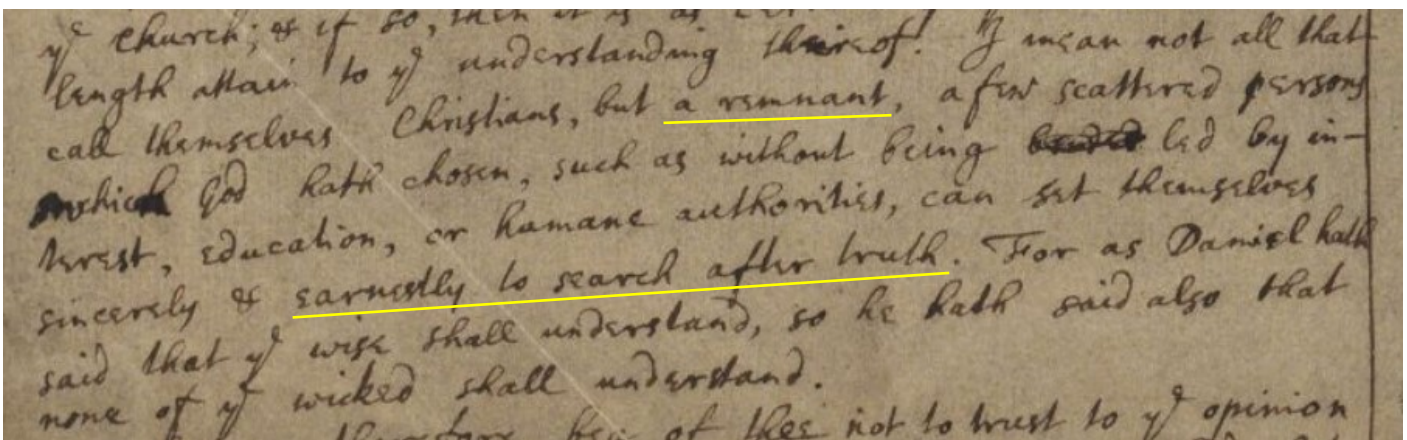 yᵉ church; & if so, then it is as
length attain to yᵉ understanding thereof. I mean not all that
call themselves Christians, but a remnant, a few scattered persons
which God hath chosen, such as without being led by in-
terest, education, or humane authorities, can set themselves
sincerely & earnestly to search after truth. For as Daniel hath
said that yᵉ wise shall understand, so he hath said also that
none of yᵉ wicked shall understand.
therefore beg of thee not to trust to yᵉ opinion